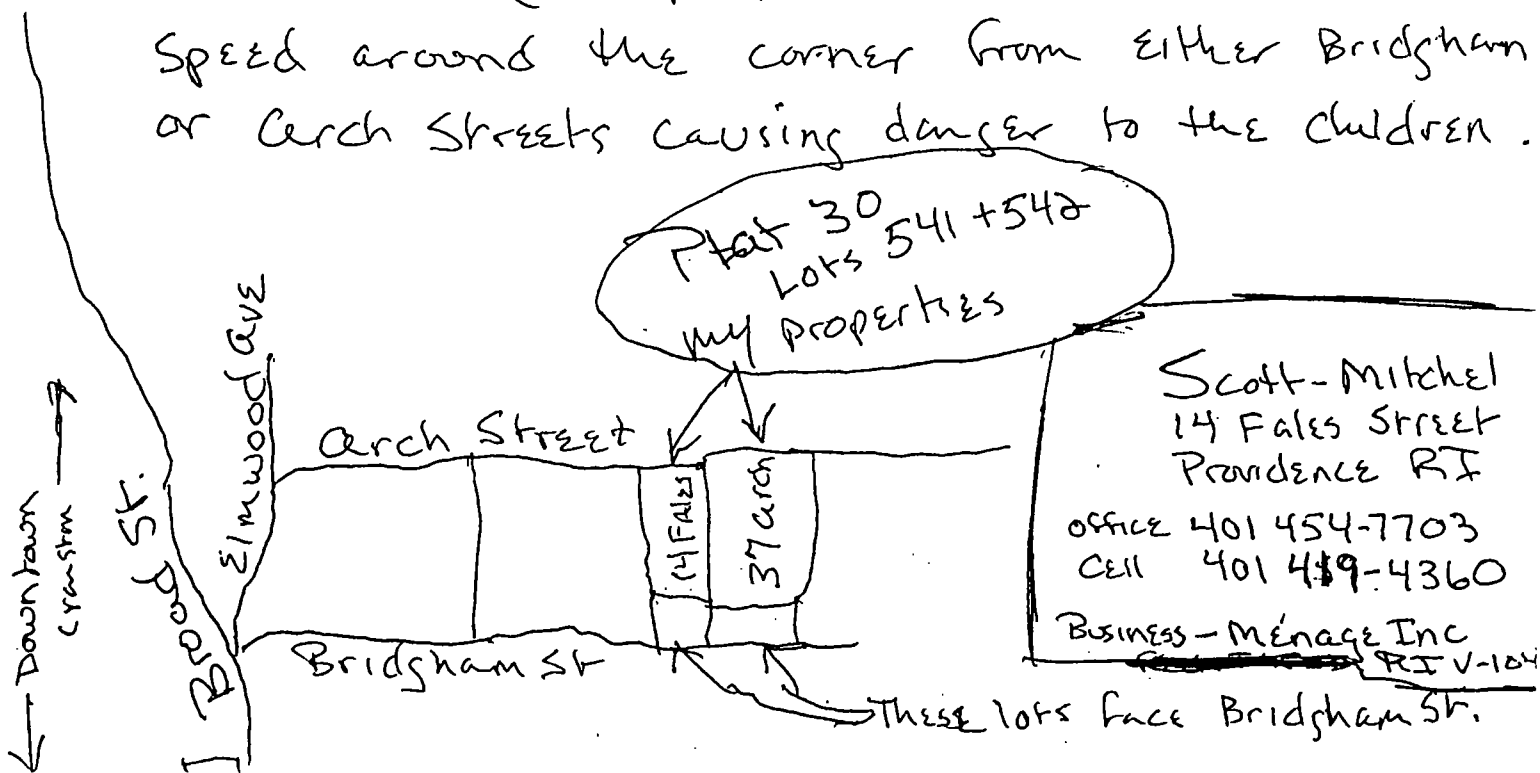 Speed around the corner from either Bridgham
or Arch Streets causing danger to the children.
Plat 30
Lots 541 + 542
my properties
Elmwood Ave
Arch Street
14 Fales
37 Arch
Broad St.
← Downtown
Cranston →
Bridgham St
These lots face Bridgham St.
Scott-Mitchel
14 Fales Street
Providence RI
office 401 454-7703
Cell 401 419-4360
Business - Ménage Inc
RI V-104